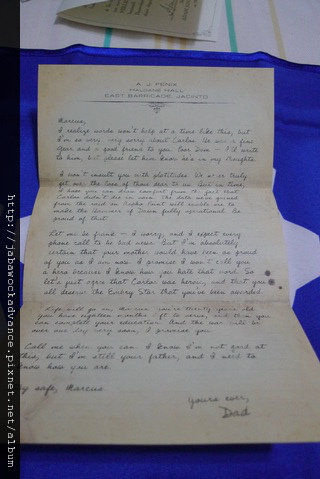 A. J. FENIX
HALDANE HALL
EAST BARRICADE, JACINTO
Marcus,
I realize words won't help at a time like this, but
I'm so very, very sorry about Carlos. He was a fine
Gear and a good friend to you (and Dom — I'll write
to him, but please let him know he's in my thoughts.
I won't insult you with platitudes. We never truly
get over the loss of those dear to us. But in time,
I hope you can draw comfort from the fact that
Carlos didn't die in vain. The data we gained
from the raid on Aspho Point will enable us to
make the Hammer of Dawn fully operational. Be
proud of that.
Let me be frank — I worry, and I expect every
phone call to be bad news. But I'm absolutely
certain that your mother would have been as proud
of you as I am now. I promise I won't call you
a hero because I know how you hate that word. So
let's just agree that Carlos was heroic, and that you
all deserve the Embry Star that you've been awarded.
Life will go on, Marcus. You're twenty years old.
You have eighteen months left to serve, and then you
can complete your education. And the war will be
over one day very soon, I promise you.
Call me when you can. I know I'm not good at
this, but I'm still your father, and I need to
know how you are.
safe, Marcus
Yours ever,
Dad
http://jabawockadvance.pixnet.net/album